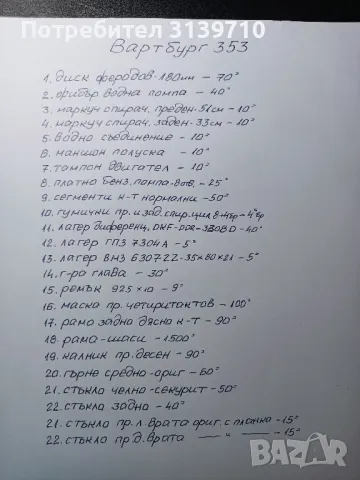 Потребител 3139710
Вартбург 353
1. диск феродов-180мм – 70°
2. ориbър водна помпа – 40°
3. маркуч спирач. преден-51см – 10°
4. маркуч спирач. заден-33см – 10°
5. водно съединение – 10°
6. маншон полуска – 10°
7. тампон двигател – 10°
8. платно бенз. помпа-8отв. – 25°
9. сегменти к-т нормални – 50°
10. гумички пр. и зад. спир. цил 8-4бр – 4°бр
11. лагер диференц. DKF-DDR- – 40°
12. лагер ГПЗ 7304А – 5°
13. лагер ВМЗ 630722-35x80x21 – 5°
14. г-ра глава – 30°
15. ремък 925x10 – 9°
16. маска пр. четиритактов – 100°
17. рамо задно дясно к-т – 90°
18. рама-шаси – 1500°
19. калник пр. десен – 90°
20. гърне средно-ориг – 60°
21. стъкло челно-секурит – 50°
22. стъкло задно – 40°
21. стъкло пр. л. врата ориг. с планка – 15°
22. стъкло пр. д. врата — " — 15°
BAZAR